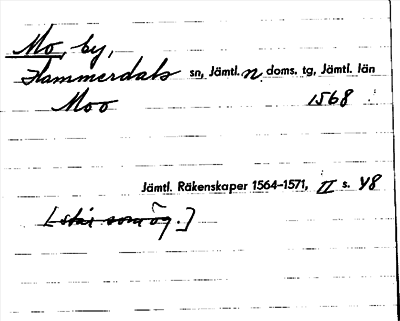 Mo, by,
Hammerdals sn, Jämtl. n. doms. tg, Jämtl. län
Moo 1568
Jämtl. Räkenskaper 1564–1571, II s. 48
[står som ög.]